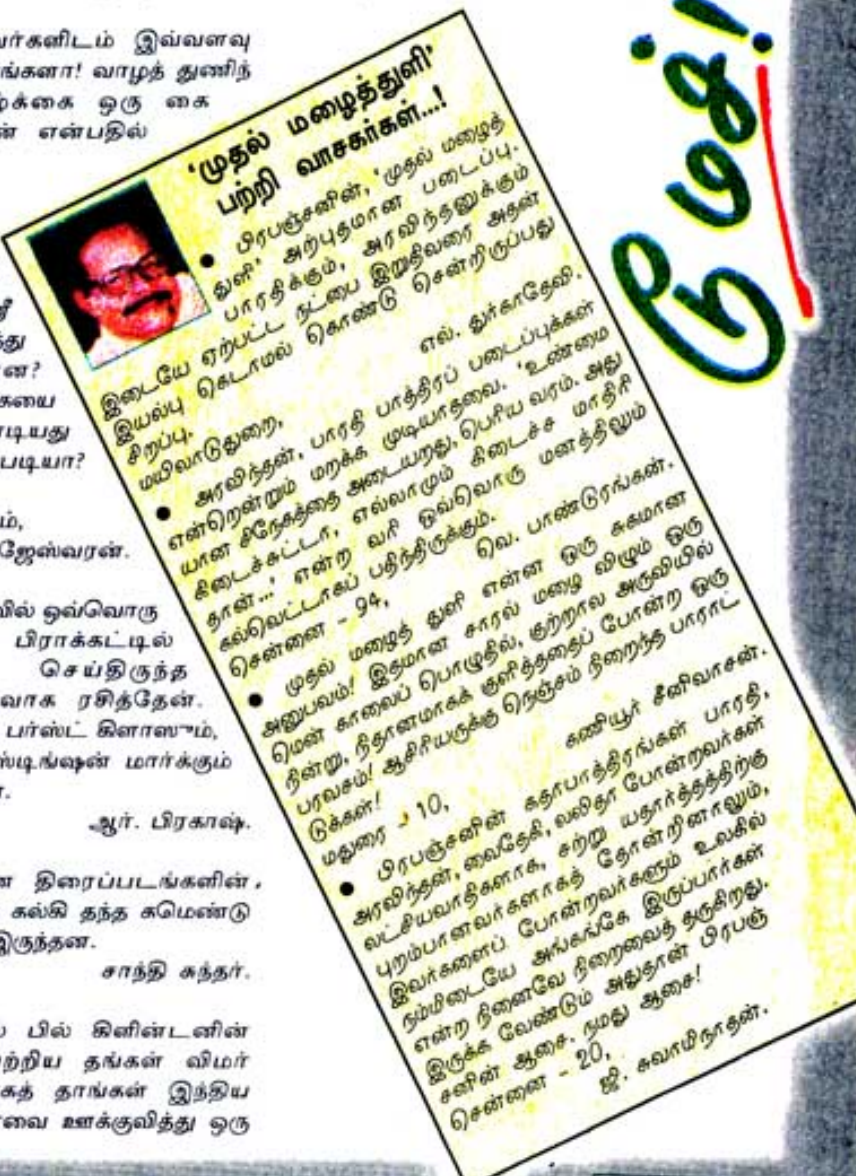 ர்களிடம் இவ்வளவு
ங்களா! வாழத் துணிந்
ழ்க்கை ஒரு கை
ன் என்பதில்
ஸ்ரீ
ந்து
ன?
கயை
டியது
படியா?
ம்,
ஜேஸ்வரன்.
வில் ஒவ்வொரு
பிராக்கட்டில்
செய்திருந்த
வாக ரசித்தேன்.
பர்ஸ்ட் கிளாஸும்,
ஸ்டிங்ஷன் மார்க்கும்
ஆர். பிரகாஷ்.
ன திரைப்படங்களின்,
கல்கி தந்த கமெண்டு
இருந்தன.
சாந்தி சுந்தர்.
பில் கிளின்டனின்
ற்றிய தங்கள் விமர்
கத் தாங்கள் இந்திய
வை ஊக்குவித்து ஒரு
'முதல் மழைத்துளி'
பற்றி வாசகர்கள்...!
● பிரபஞ்சனின், 'முதல் மழைத்
துளி' அற்புதமான படைப்பு.
பாரதிக்கும், அரவிந்தனுக்கும்
இடையே ஏற்பட்ட நட்பை இறுதிவரை அதன்
இயல்பு கெடாமல் கொண்டு சென்றிருப்பது
சிறப்பு.
மயிலாடுதுறை, எல். துர்காதேவி.
● அரவிந்தன், பாரதி பாத்திரப் படைப்புக்கள்
என்றென்றும் மறக்க முடியாதவை. 'உண்மை
யான சிநேகத்தை அடையறது, பெரிய வரம். அது
கிடைச்சுட்டா, எல்லாமும் கிடைச்ச மாதிரி
தான்...' என்ற வரி ஒவ்வொரு மனத்திலும்
கல்வெட்டாகப் பதிந்திருக்கும்.
சென்னை - 94, வெ. பாண்டுரங்கன்.
● முதல் மழைத் துளி என்ன ஒரு சுகமான
அனுபவம்! இதமான சாரல் மழை விழும் ஒரு
மென் காலைப் பொழுதில், குற்றால அருவியில்
நின்று, நிதானமாகக் குளித்ததைப் போன்ற ஒரு
பரவசம்! ஆசிரியருக்கு நெஞ்சம் நிறைந்த பாராட்
டுக்கள்!
மதுரை - 10, கணியூர் சீனிவாசன்.
● பிரபஞ்சனின் கதாபாத்திரங்கள் பாரதி,
அரவிந்தன், வைதேகி, லலிதா போன்றவர்கள்
லட்சியவாதிகளாக, சற்று யதார்த்தத்திற்கு
புறம்பானவர்களாகத் தோன்றினாலும்,
இவர்களைப் போன்றவர்களும் உலகில்
நம்மிடையே அங்கங்கே இருப்பார்கள்
என்ற நினைவே நிறைவைத் தருகிறது.
இருக்க வேண்டும் அதுதான் பிரபஞ்
சனின் ஆசை. நமது ஆசை!
சென்னை - 20, ஜி. சுவாமிநாதன்.